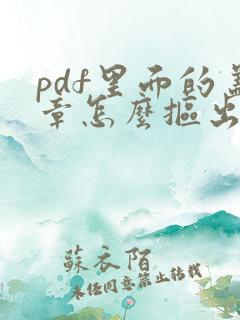 pdf里面的盖
章怎麽摳出
蘇衣陌
未经同意禁止转载